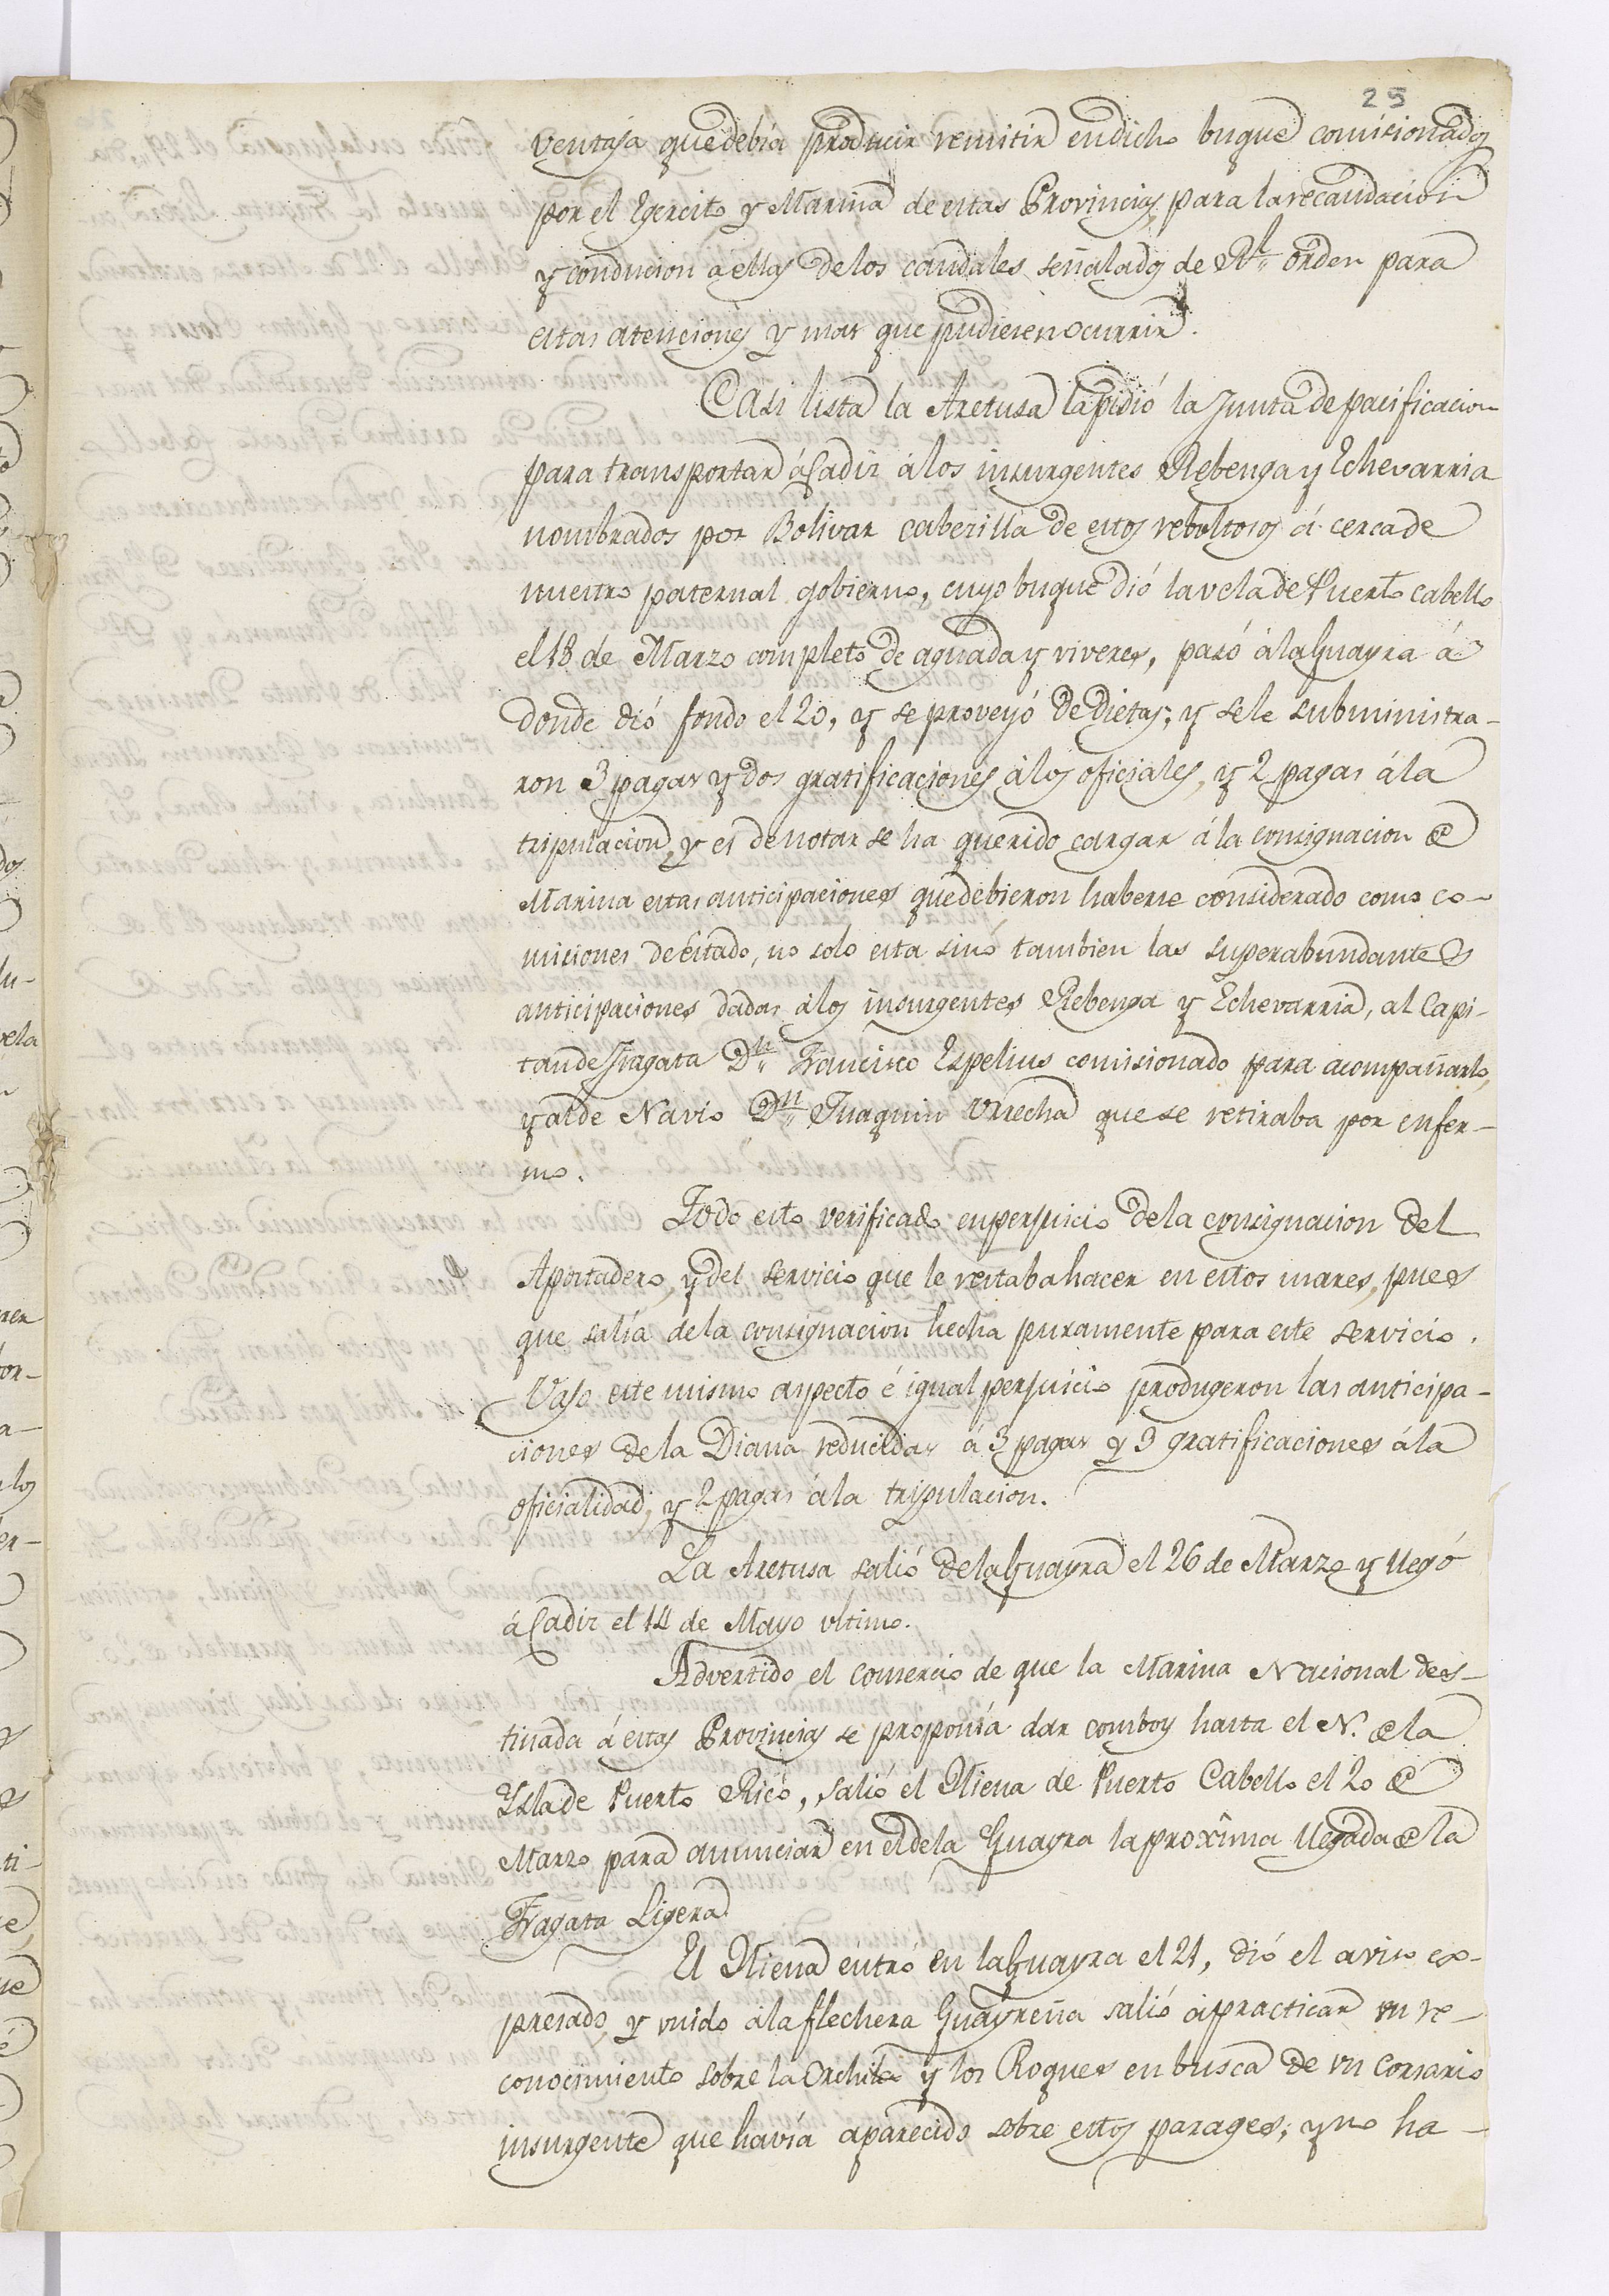 25
ventaja quedebia producir remitir endicho buque comisionados
por el Egercito y Marina de estas Provincias para la recaudacion
y conducion á ellas delos caudales señalados de Rl. orden para
estas atenciones y mas que pudiesen ocurrir.
Casi lista la Aretusa lapidió la Junta de pacificacion
para transportar á Cadiz álos insurgentes Rebenga y Echevarria
nombrados por Bolivar caberilla de estos reboltosos á cerca de
nuestro paternal gobierno, cuyo buque dió lavela de Puerto cabello
el 18 de Marzo completo de aguada y viveres, pasó álaGuayra á
donde dió fondo el 20, y se proveyó de dietas; y sele subministra-
ron 3 pagas y dos gratificaciones álos oficiales, y 2 pagas ála
tripulacion, y es denotar se ha querido cargar á la consignacion de
Marina estas anticipaciones quedebieron haberse considerado como co-
misiones de estado, no solo esta sinó tambien las superabundantes
anticipaciones dadas álos insurgentes Rebenga y Echevarria, al Capi-
tande Fragata Dn. Francisco Espelius comisionado para acompañarlos,
y alde Navio Dn. Juaquin Urrecha que se retiraba por enfer-
mo.
Todo esto verificado enperjuicio dela consignacion del
Apostadero, y del servicio que le restaba hacer en estos mares, pues
que salía dela consignacion hecha puramente para este servicio.
Vajo este mismo aspecto é igual perjuicio produgeron las anticipa-
ciones dela Diana reducidas á 3 pagas y 3 gratificaciones ála
oficialidad, y 2 pagas ála tripulacion.
La Aretusa salió delaGuayra el 26 de Marzo y llegó
á Cadiz el 14 de Mayo ultimo.
Advertido el comercio de que la Marina Nacional des-
tinada á estas Provincias se proponía dar comboy hasta el N. dela
Ysla de Puerto Rico, salió el Hiena de Puerto Cabello el 20 de
Marzo para anunciar en el dela Guayra la proxîma llegada dela
Fragata Ligera
El Hiena entró en laGuayra el 21, dió el aviso ex-
presado, y unido álaflechera Guayreña salió ápracticar un re-
conocimiento sobre la Orchila y los Roques en busca de un corsario
insurgente que havía aparecido sobre estos parages; y no ha-